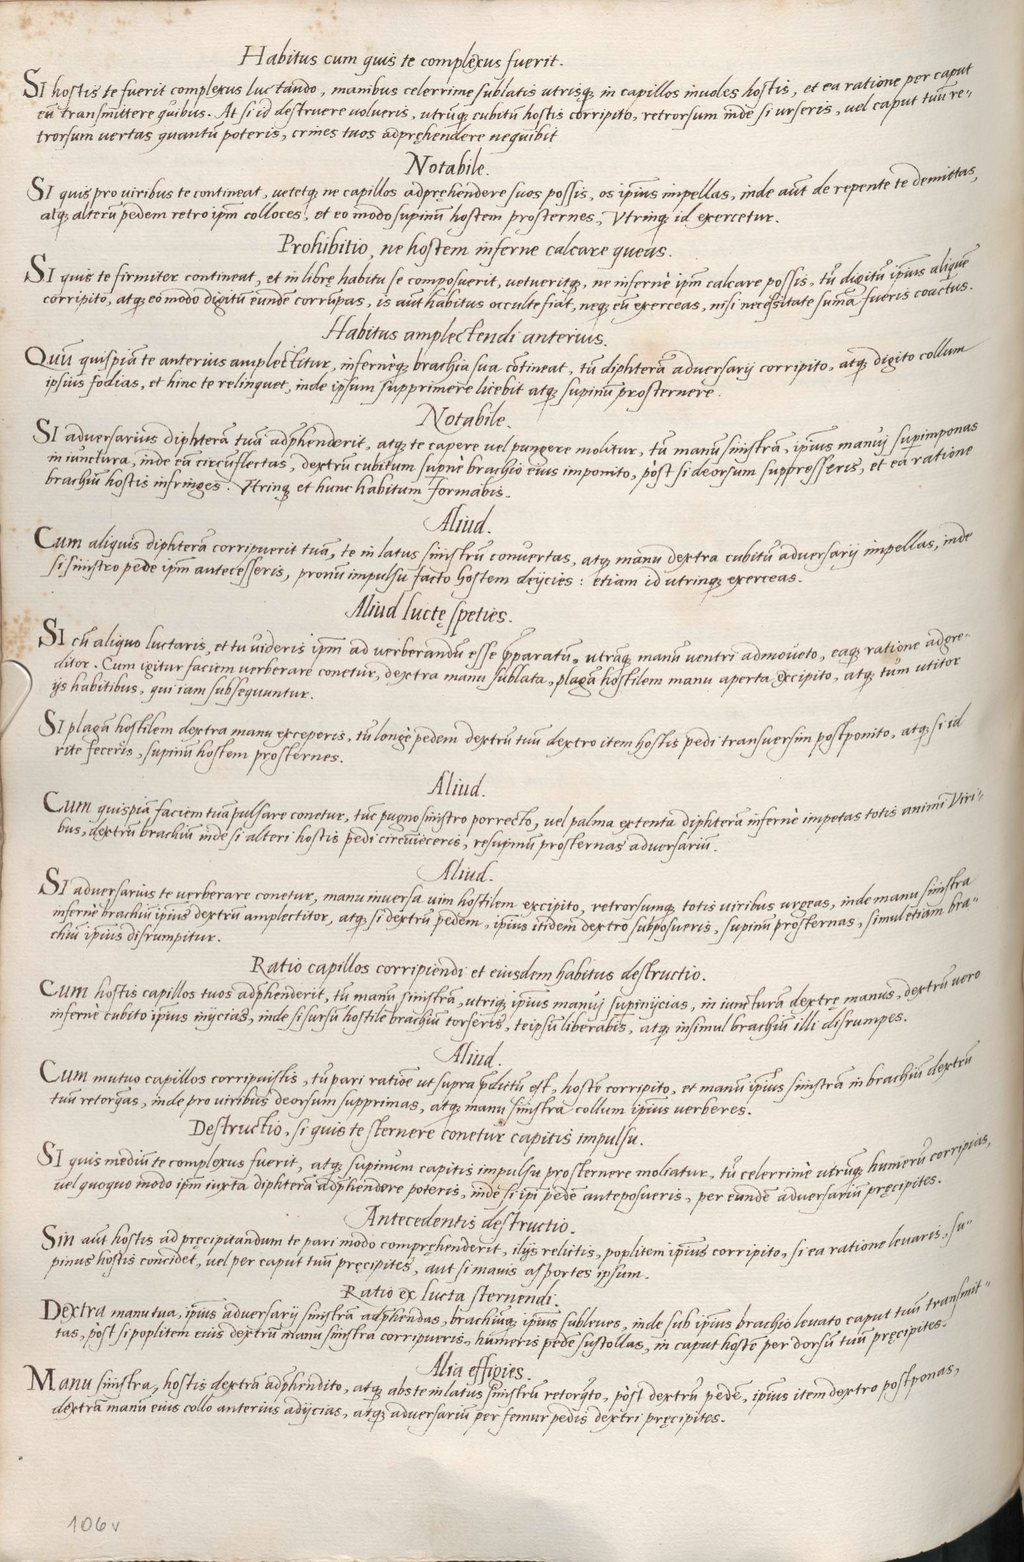 Habitus cum quis te complexus fuerit.
SI hostis te fuerit complexus luctando, manibus celerrime sublatis utrisq; in capillos inuoles hostis, et ea ratione per caput
eũ transmittere quibis. At si id destruere volueris, utrũq; cubitũ hostis corripito, retrorsum inde si urseris, uel caput tuũ re-
trorsum uertas quantũ poteris, crines tuos adpręhendere nequibit
Notabile.
SI quis pro uiribus te contineat, uetetq; ne capillos adpręhendere suos possis, os ipsius inpellas, inde aũt de repente te demittas,
atq; alterũ pedem retro ipm̃ colloces, et eo modo supinũ hostem prosternes, Vtrinq; id exercetur.
Prohibitio, ne hostem inferne calcare queas.
SI quis te firmiter contineat, et in librę habitu se composuerit, uetueritq;, ne infernè ipm̃ calcare possis, tũ digitũ ipsius aliquẽ
corripito, atq; eo modo digitũ eundẽ corrũpas, is aũt habitus occulte fiat, neq; eũ exerceas, nisi necessitate suma fueris coactus.
Habitus amplectendi anterius.
Quũ quispiã te anterius amplectitur, infernèq; brachia sua cõtineat, tũ diphterã adversarij corripito, atq; digito collum
ipsius fodias, et hinc te relinquet, inde ipsum supprimere licebit atq; supinũ prosternere.
Notabile.
SI adversarius diphterã tuã adp̃henderit, atq; te capere uel pungere molitur, tũ manũ sinistrã, ipsius manuj supimponas
in iunctura, inde eã circũflectas, dextrũ cubitum supnè brachio eius imponito, pòst si deorsum suppresseris, et ea ratione
brachiũ hostis infringes. Vtrinq; et hunc habitum formabis.
Aliud.
Cum aliquis diphterã corripuerit tuã, te in latus sinistrũ conuertas, atq; manu dextra cubitũ adversarij impellas, inde
si sinistro pede ipm̃ antecesseris, pronũ impulsu facto hostem deijcies: etiam id utrinq; exerceas.
Aliud luctę speties.
SI cũ aliquo luctaris, et tu uideris ipm̃ ad verberandũ esse p̃paratũ, utrãq; manũ uentri admoueto, eaq; ratione adgre-
ditor. Cum igitur faciem verberare conetur, dextra manu sublata, plagã hostilem manu aperta excipito, atq; tum utitor
ijs habitibus, qui iam subsequuntur.
SI plagã hostilem dextra manu exceperis, tũ longè pedem dextrũ tuũ dextro item hostis pedi transuersim postponito, atq; si id
rite feceris, supinũ hostem prosternes.
Aliud.
Cum quispiã faciem tuã pulsare conetur, tũc pugno sinistro porrecto, uel palma extenta diphterã infernè impetas totis animi Viri-
bus, dextrũ brachiũ inde si alteri hostis pedi circũieceris, resupinũ prosternas adversariũ.
Aliud.
SI adversarius te verberare conetur, manu inversa uim hostilem excipito, retrorsumq; totis viribus urgeas, inde manu sinistra
infernè brachiũ ipsius dextrũ amplectitor, atq; si dextrũ pedem, ipsius itidem dextro subposueris, supinũ prosternas, simul etiam bra-
chiũ ipsius disrumpitur.
Ratio capillos corripiendi et eiusdem habitus destructio.
Cum hostis capillos tuos adp̃henderit, tũ manũ sinistrã, utriq; ipsius manuj supinijcias, in iunctura dextrę manus, dextrũ vero
infernè cubito ipsius inijcias, inde si sursũ hostile brachiũ torseris, teipsũ liberabis, atq; insimul brachiũ illi disrumpes.
Aliud.
Cum mutuo capillos corripuistis, tũ pari ratiõe ut supra p̃dictũ est, hostẽ corripito, et manũ ipsius sinistrã in brachiũ dextrũ
tuũ retorq̃as, inde pro viribus deorsum supprimas, atq; manu sinistra collum ipsius verberes.
Destructio, si quis te sternere conetur capitis impulsu.
SI quis mediũ te complexus fuerit, atq; supinum capitis impulsu prosternere moliatur, tũ celerrimè utrũq; humerũ corripias,
uel quoquo modo ipm̃ iuxta diphterã adp̃hendere poteris, inde si ipi pedẽ anteposueris, per eundẽ adversariũ pręcipites.
Antecedentis destructio.
Sin aũt hostis ad pręcipitandum te pari modo compręhenderit, ilijs relictis, poplitem ipsius corripito, si ea ratione leuaris, su-
pinus hostis concidet, uel per caput tuũ pręcipites, aut si mauis asportes ipsum.
Ratio ex lucta sternendi.
Dextra manu tua, ipsius adversarij sinistrã adp̃hendas, brachiũq; ipsius subleues, inde sub ipsius brachio leuato caput tuũ transmit-
tas, pòst si poplitem eius dextrũ manu sinistra corripueris, humeris pedẽ sustollas, in caput hostẽ per dorsũ tuũ pręcipites.
Alia effigies.
Manu sinistra, hostis dextrã adp̃hendito, atq; abs te in latus sinistrũ retorq̃to, pòst dextrũ pedẽ, ipsius item dextro postponas,
dextrã manũ eius collo anterius adijcias, atq; adversariũ per femur pedis dextri pręcipites.
106v